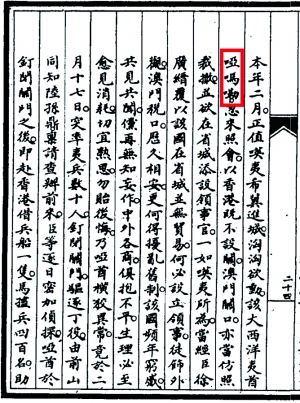 本年二月。正值嘆夷希冀進城洶洶欲試該大西洋夷酋
啞嗎嘞忽來照會以香港既不設關澳門關口亦當仿照
裁撤並欲在省城添設領事官一如嘆夷所為當經臣徐
廣縉覆以該國在省城並無貿易何必設立領事徒飾外
觀澳門稅口歷久相安更何得擾亂舊制該國頻年窮蹙
共見共聞儻再無知妄作中外各商俱抱不平生理必至
愈見消耗切宜熟思勿貽後悔乃啞酋橫狡異常竟於二
月十七日突率夷兵數十人釘閉關門驅逐丁役由前山
同知陸孫鼎稟請查辦前來臣等逐日密加偵探啞酋於
釘閉關門之後即赴香港借兵船一隻兵四百名助
二十四